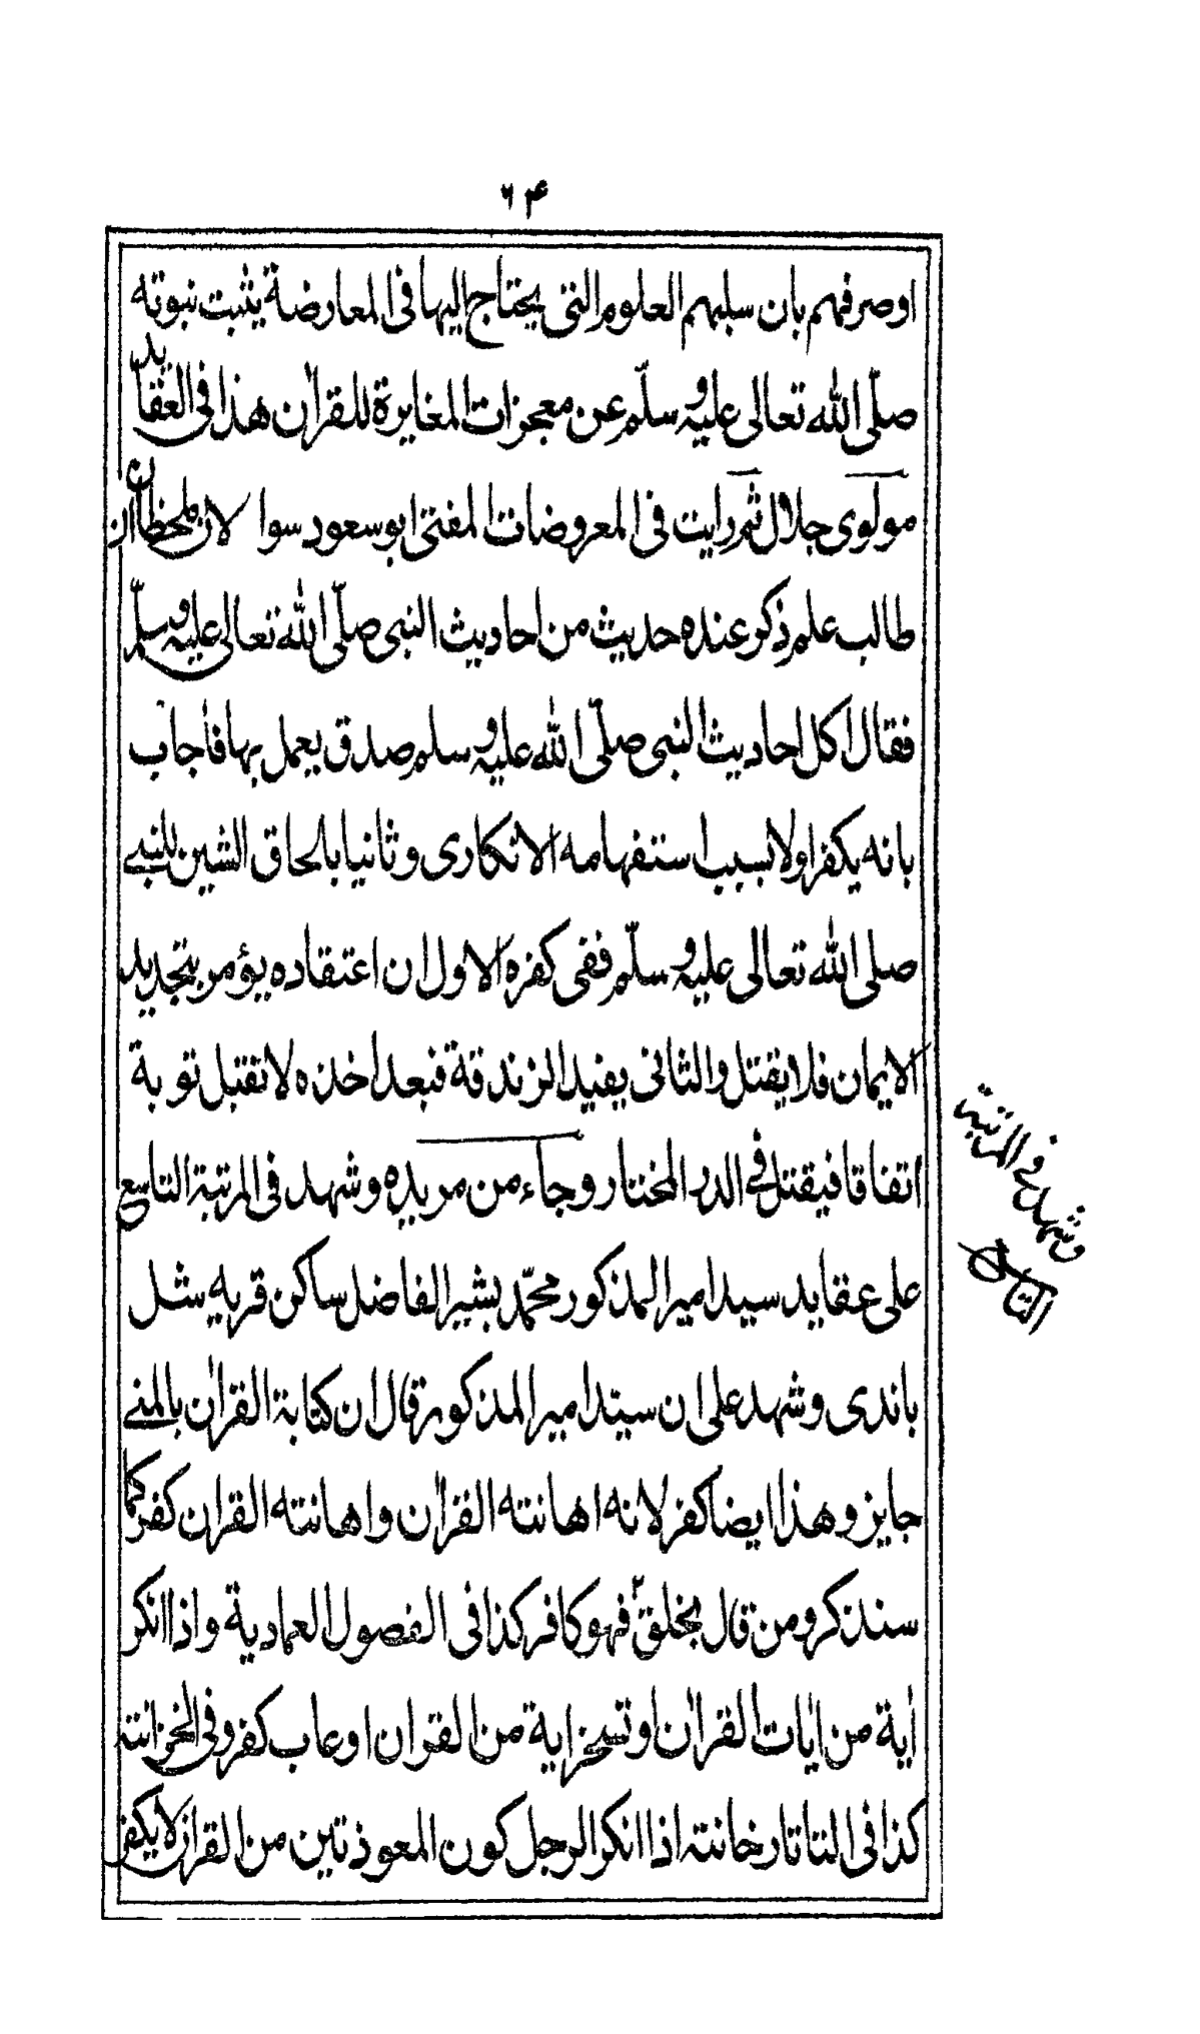 ٦۴
اوصرفهم بان سلبهم العلوم التی یحتاج الیها فی المعارضة یثبت نبوته
صلّی الله تعالی علیه وسلّم عن معجزات المغایرة للقراٰن هذا فی العقاید
مولوی جلال ثم رایت فی المعروضات المفتی ابو سعود سوا لان ملخظاان ان
طالب علم ذکر عنده حدیث من احادیث النبی صلّی الله تعالی علیه وسلّم
فقال اکل احادیث النبی صلّی الله علیه وسلم صدق یعمل بها فاجاب
بانه یکفر اولا بسبب استفهامه الانکاری وثانیا بالحاق الشین للنبی
صلی الله تعالی علیه وسلّم ففی کفره الاول ان اعتقاده یؤمر بتجدید
الایمان فلا یقتل والثانی یفید الزندقة فبعد اخذه لا تقبل توبة
اتفاقا فیقتل فی الدر المختار وجاء من مریدہ وشهد فی المرتبة التاسع
علی عقاید سید امیر المذکور محمّد بشیر الفاضل ساکن قریه شل
باندی وشهد علی ان سیّد امیر المذکور قال ان کتابة القراٰن بالمنی
جایز وهذا ایضا کفر لانه اهانته القراٰن واهانته القران کفر کما
سنذکر ومن قال بخلق فهو کافر کذا فی الفصول العمادیة واذا انکر
اٰیة من اٰیات القراٰن او تسخر ایة من القران او عاب کفر وفی الخزانته
کذا فی التاتارخانته اذا انکر الرجل کون المعوذتین من القران لا یکفر
وشهد فی المرتبة
التاسع